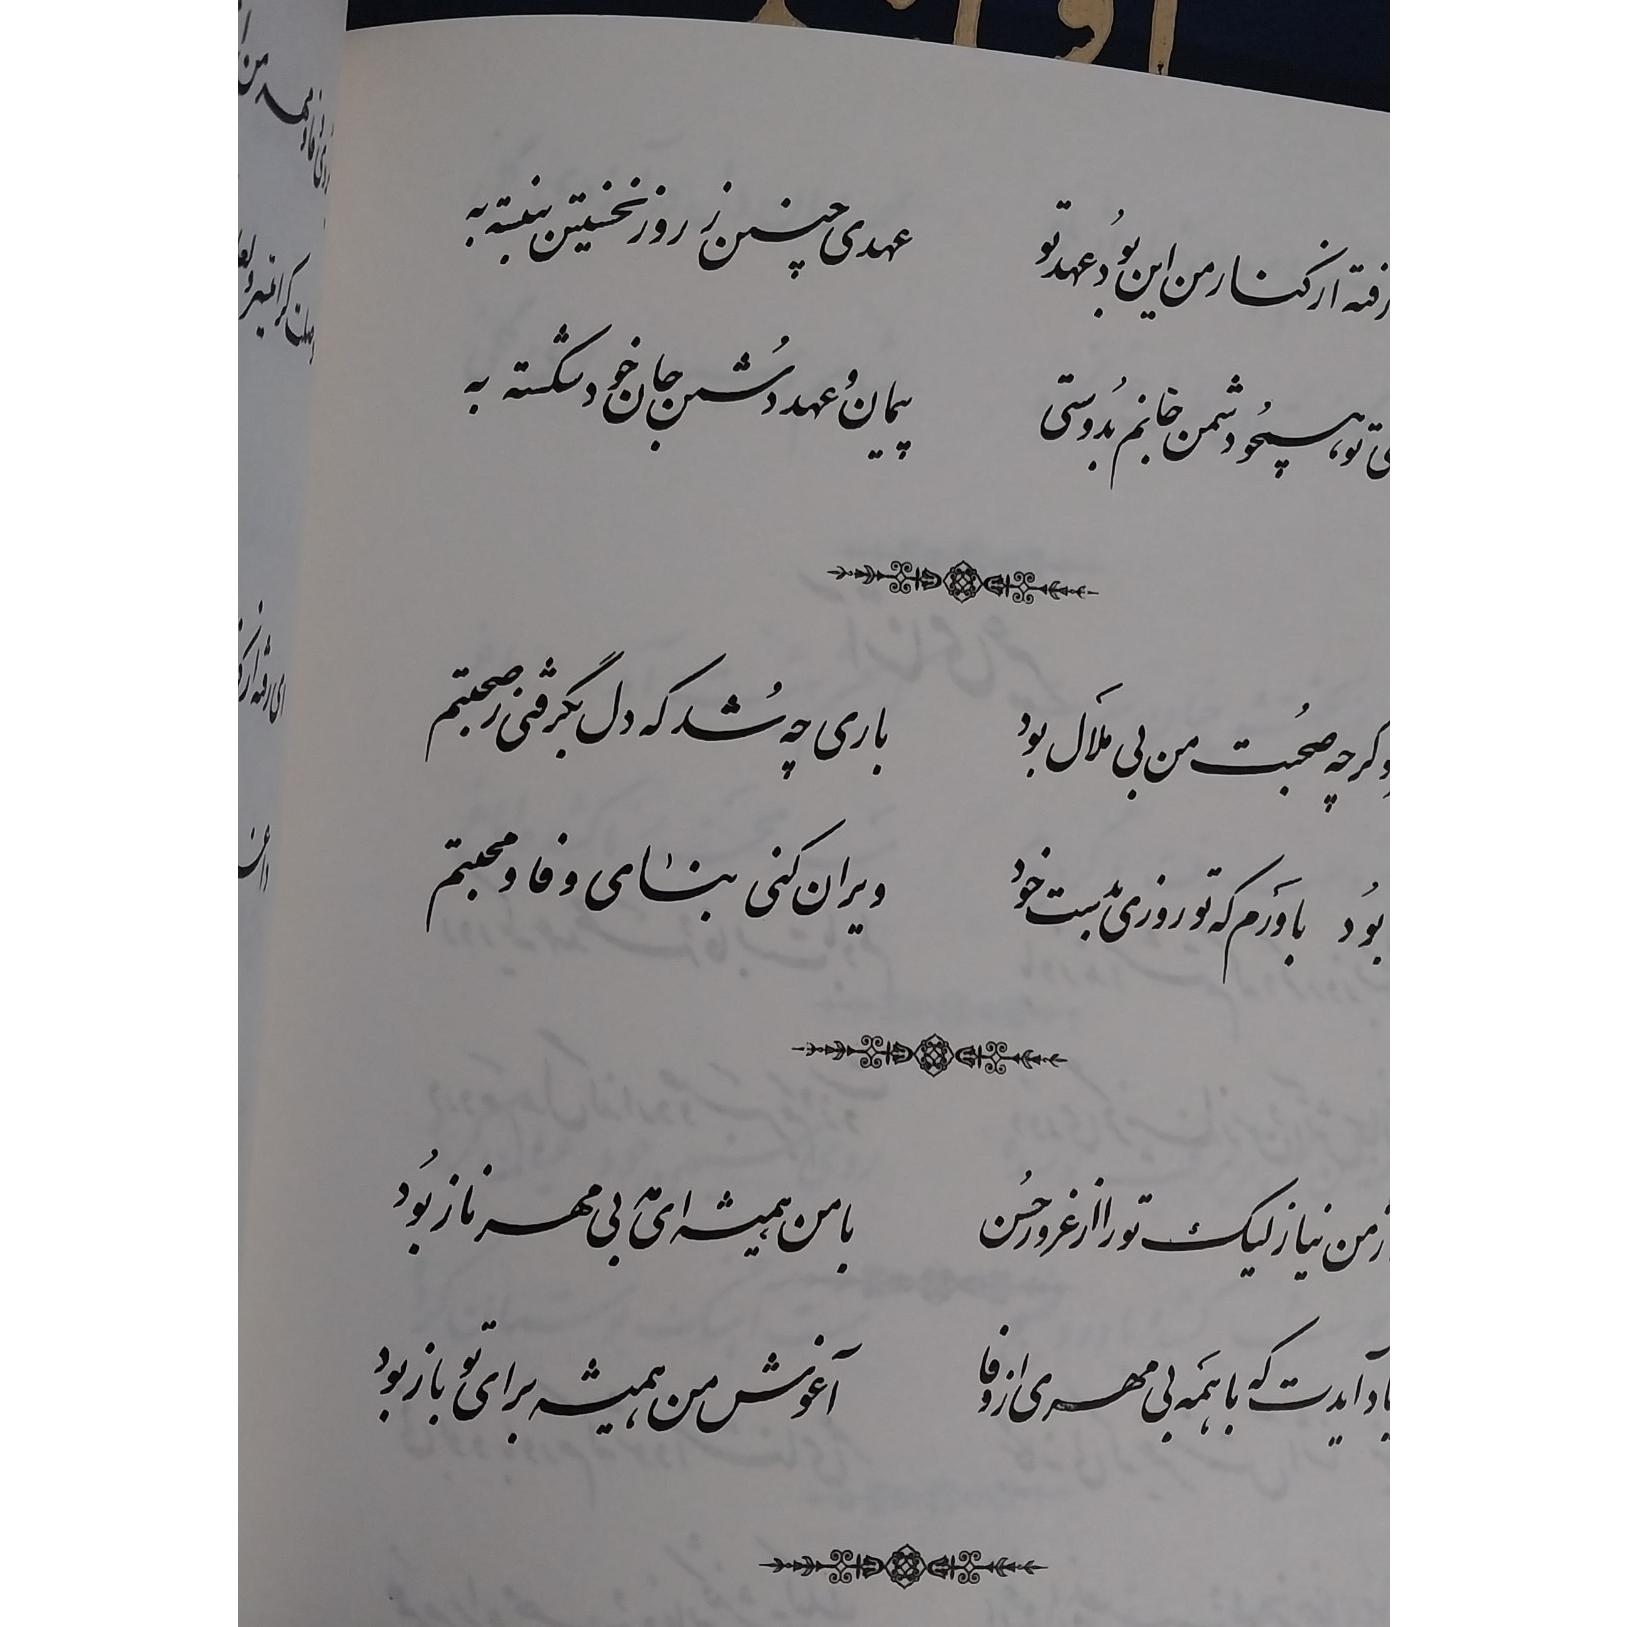 رفته از کنار من این بُود عهد تو
عهدی چنین ز روز نخستین نبسته به
تو، همچو دشمن جانم بدُوستی
پیمان و عهد دُشمن جان خود شکسته به
گرچه صحبت من بی ملاَل بود
باری چه شُد که دل بگرفتی ز صحبتم
بُود باورَم که تو روزی بدست خود
ویران کنی بنای وفا و محبتم
من نیاز لیک تو را از غرور حُسن
با من همیشه ای مه بی مهر ناز بُود
یاد آیدت که با همَه بی مهری از وفا
آغوش من همیشه برای تو باز بود